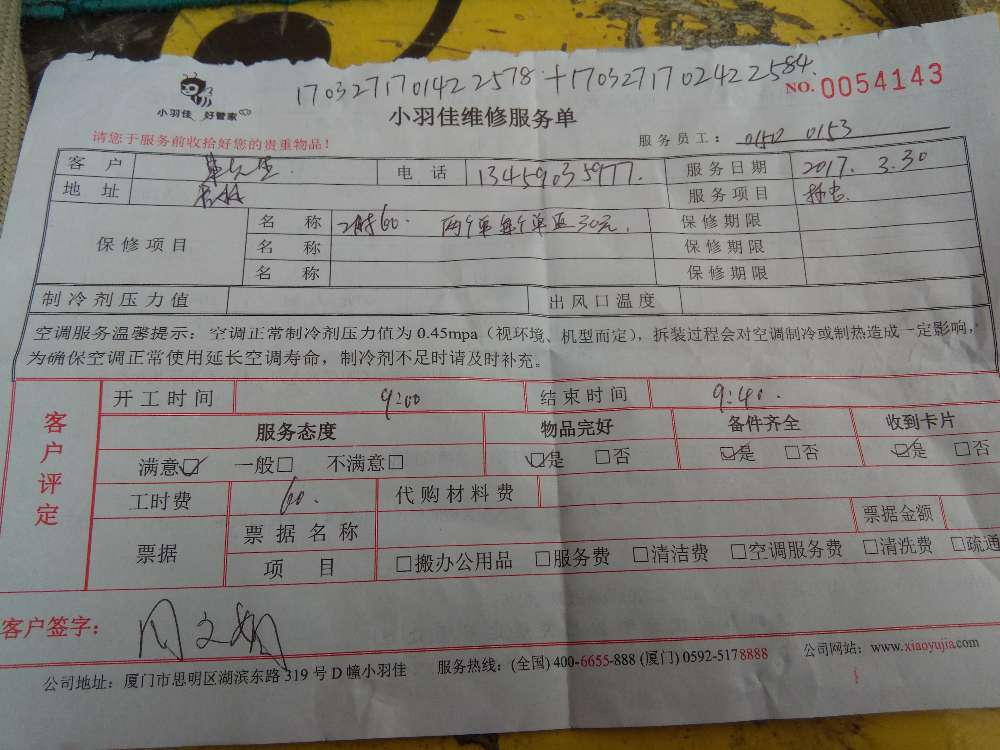 1703271701422578+1703271702422584
小羽佳 好管家
NO. 0054143
小羽佳维修服务单
请您于服务前收拾好您的贵重物品！
服务员工： 0150 0153
客户 电话 13459035977. 服务日期 2017. 3.30
地址 服务项目
保修项目 名称 60. 两个单每个单 30元. 保修期限
名称 保修期限
名称 保修期限
制冷剂压力值 出风口温度
空调服务温馨提示：空调正常制冷剂压力值为0.45mpa（视环境、机型而定），拆装过程会对空调制冷或制热造成一定影响，
为确保空调正常使用延长空调寿命，制冷剂不足时请及时补充。
客户评定
开工时间 9:00 结束时间 9:40.
服务态度 物品完好 备件齐全 收到卡片
满意☑ 一般□ 不满意□ ☑是 □否 ☑是 □否 ☑是 □否
工时费 60. 代购材料费
票据 票据名称 票据金额
项目 □搬办公用品 □服务费 □清洁费 □空调服务费 □清洗费 □疏通
客户签字：
公司地址：厦门市思明区湖滨东路319号D幢小羽佳 服务热线：(全国) 400-6655-888 (厦门) 0592-5178888 公司网站：www.xiaoyujia.com